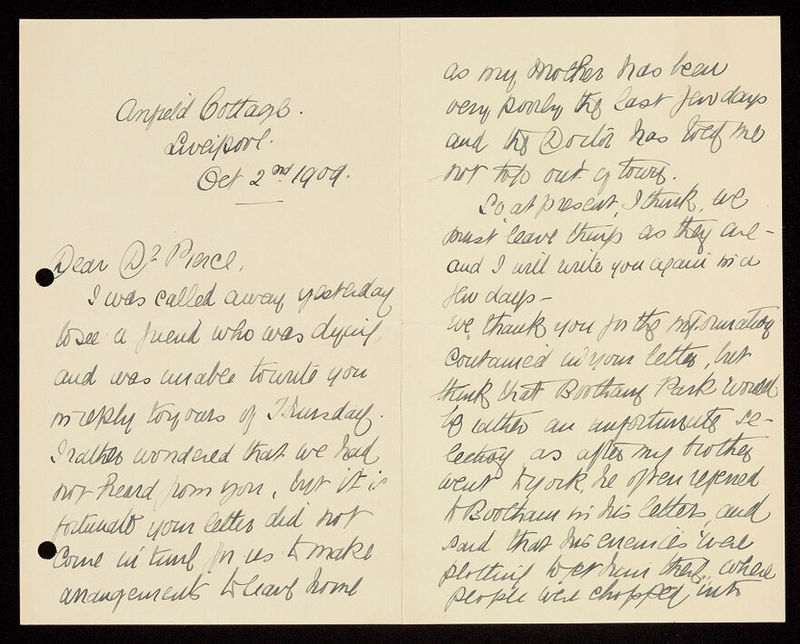 Anfield Cottage.
Liverpool.
Oct 2nd 1909.
Dear Dr Pierce,
I was called away yesterday
to see a friend who was dying
and was unable to write you
in reply to yours of Thursday.
I rather wondered that we had
not heard from you, but it is
fortunate your letter did not
come in time for us to make
arrangements to leave home
as my Mother has been
very poorly the last few days
and the Doctor has told me
not to go out of town.
So at present, I think, we
must leave things as they are -
and I will write you again in a
few days -
We thank you for the information
contained in your letter, but
think that Bootham Park would
be rather an unfortunate se-
lection as after my brother
went to York, he often referred
to Bootham in his letters, and
said that his enemies were
plotting to get him there, where
people were chopped into